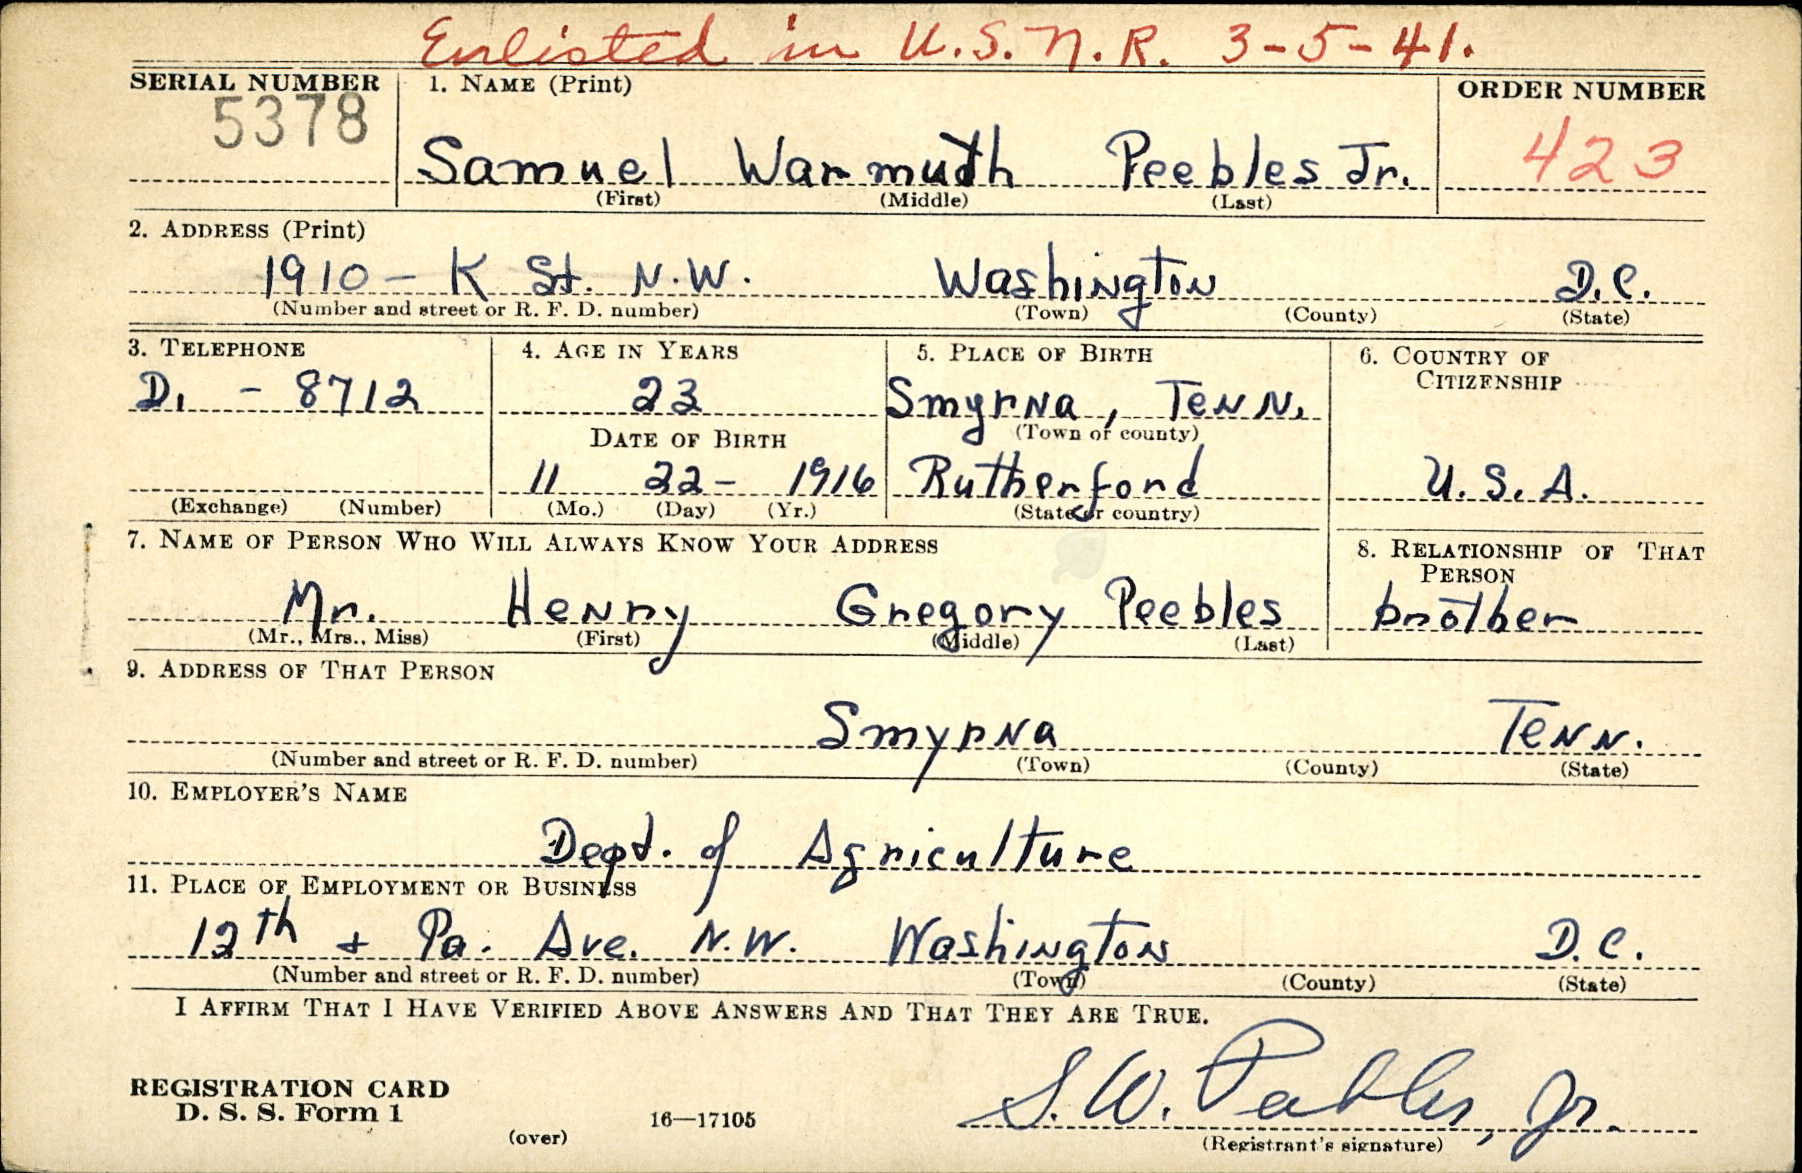 Enlisted in U.S.N.R. 3-5-41.
SERIAL NUMBER 1. NAME (Print) ORDER NUMBER
5378 Samuel Warmuth Peebles Jr. 423
(First) (Middle) (Last)
2. ADDRESS (Print)
1910 - K St. N.W. Washington D.C.
(Number and street or R. F. D. number) (Town) (County) (State)
3. TELEPHONE 4. AGE IN YEARS 5. PLACE OF BIRTH 6. COUNTRY OF CITIZENSHIP
D. - 8712 23 Smyrna, Tenn.
(Town or county)
DATE OF BIRTH
11 22- 1916 Rutherford U.S.A.
(Exchange) (Number) (Mo.) (Day) (Yr.) (State or country)
7. NAME OF PERSON WHO WILL ALWAYS KNOW YOUR ADDRESS 8. RELATIONSHIP OF THAT PERSON
Mr. Henry Gregory Peebles brother
(Mr., Mrs., Miss) (First) (Middle) (Last)
9. ADDRESS OF THAT PERSON
Smyrna Tenn.
(Number and street or R. F. D. number) (Town) (County) (State)
10. EMPLOYER'S NAME
Dept. of Agriculture
11. PLACE OF EMPLOYMENT OR BUSINESS
12th + Pa. Ave. N.W. Washington D.C.
(Number and street or R. F. D. number) (Town) (County) (State)
I AFFIRM THAT I HAVE VERIFIED ABOVE ANSWERS AND THAT THEY ARE TRUE.
REGISTRATION CARD
D. S. S. Form 1 16—17105 S. W. Peebles, Jr.
(over) (Registrant's signature)